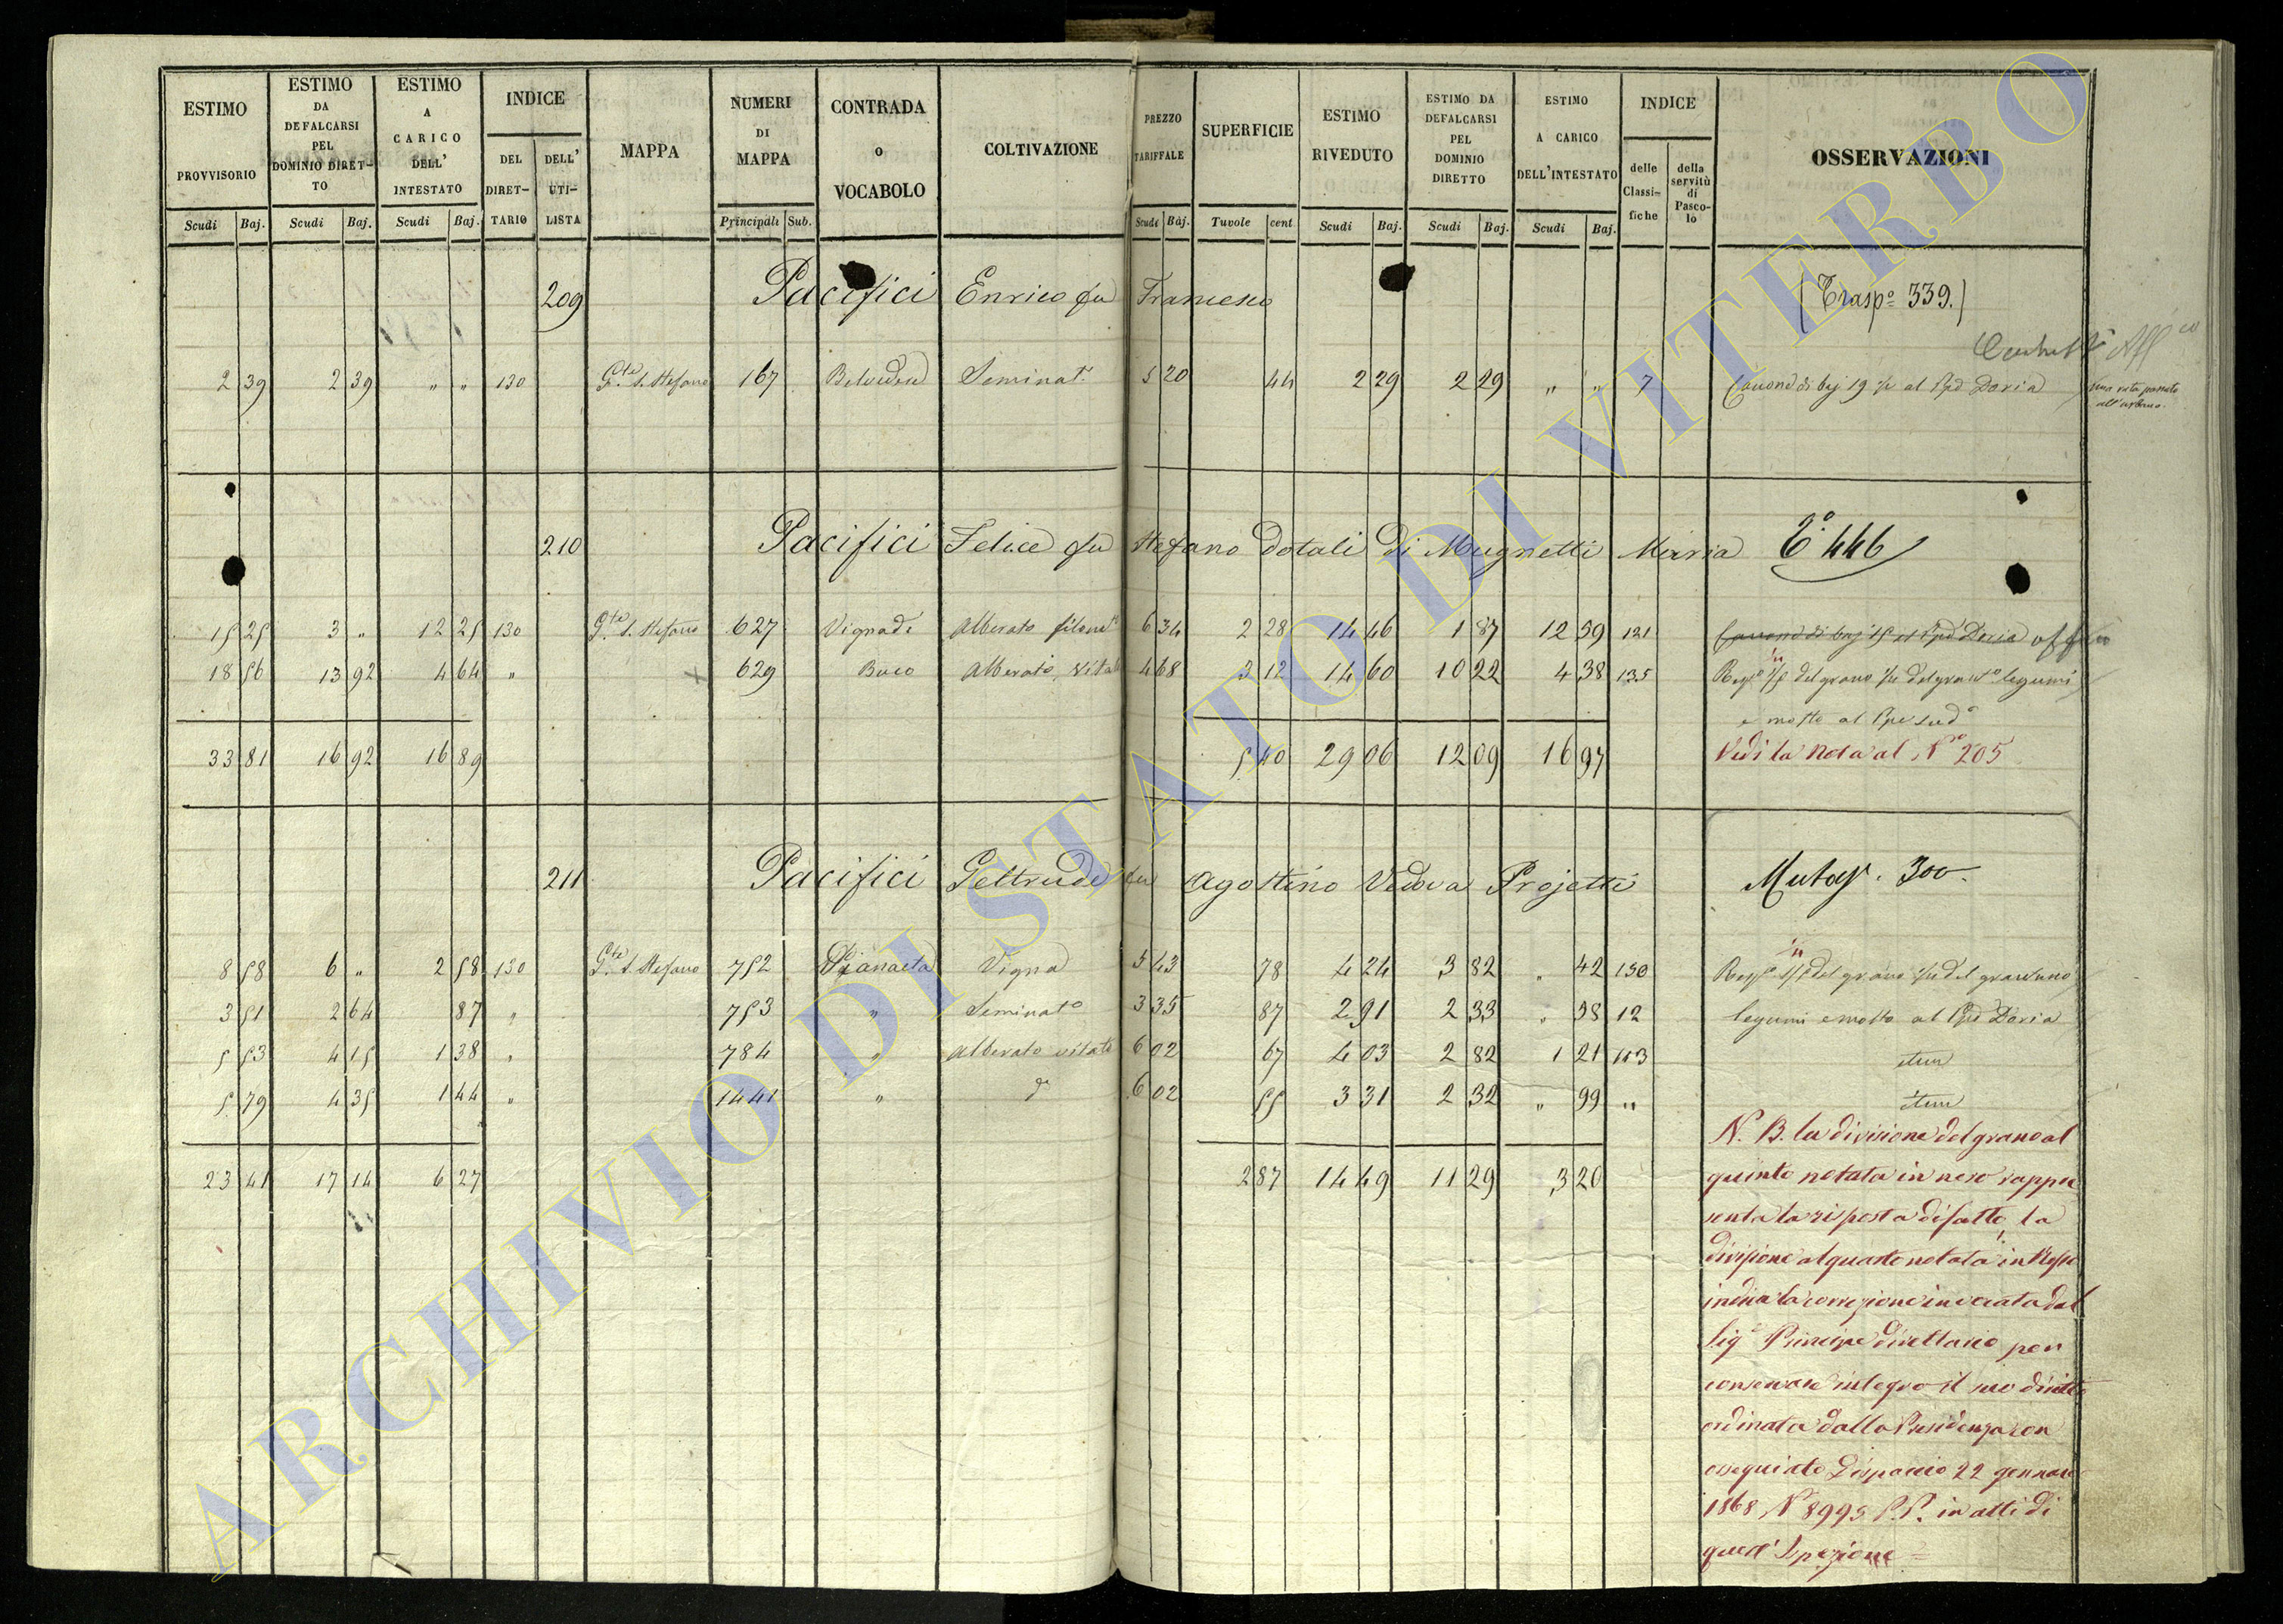 ESTIMO PROVVISORIO Scudi Baj. ESTIMO DA DEFALCARSI PEL DOMINIO DIRETTO Scudi Baj. ESTIMO A CARICO DELL' INTESTATO Scudi Baj. INDICE DEL DIRETTARIO DELL' UTILISTA MAPPA NUMERI DI MAPPA Principali Sub. CONTRADA O VOCABOLO COLTIVAZIONE PREZZO TARIFFALE Scudi Baj. SUPERFICIE Tavole cent ESTIMO RIVEDUTO Scudi Baj. ESTIMO DA DEFALCARSI PEL DOMINIO DIRETTO Scudi Baj. ESTIMO A CARICO DELL'INTESTATO Scudi Baj. INDICE delle Classifiche della servitù di Pascolo OSSERVAZIONI
209 Pacifici Enrico fu Francesco (Trasp.o 339.)
2 39 2 39 " " 130 Gte S. Stefano 167 Belvedere Seminat.o 5 20 44 2 29 2 29 " " 7 Canone di baj 19 al Ppe Doria
all'urbano.
210 Pacifici Felice fu Stefano dotali di Mugnetti Maria T.o 446
15 25 3 " 12 25 130 Gte S. Stefano 627 Vignadi Alberato filonato 6 34 2 28 14 46 1 87 12 59 121 Canone di baj 15 al Ppe Doria
18 56 13 92 4 64 " 629 Buco Alberato, vitato 4 68 3 12 14 60 10 22 4 38 135 Rispa 1/5 del grano del granto legumi
e mosto al Ppe sudo
33 81 16 92 16 89 5 40 29 06 12 09 16 97 Vedi la Nota al No 205
211 Pacifici Geltrude fu Agostino Vedova Projetti Mutaz. 300.
8 58 6 " 2 58 130 Gte S. Stefano 752 Pianaeta Vigna 5 43 78 4 24 3 82 " 42 130 Rispa 1/5 del grano del granturco
3 51 2 64 87 " 753 " Seminato 3 35 87 2 91 2 33 " 58 12 legumi e mosto al Ppe Doria
5 53 4 15 1 38 " 784 " Alberato vitato 6 02 67 4 03 2 82 1 21 113 itim
5 79 4 35 1 44 " 1441 " do 6 02 55 3 31 2 32 " 99 " itim
23 41 17 14 6 27 2 87 14 49 11 29 3 20
N. B. la divisione del grano al
quinto notata in nero rappre
senta la risposta di fatto, la
divisione al quarto notata in Rosso
indica la correzione invocata dal
Sigr Principe direttario per
conservare integro il suo diritto
ordinata dalla Presidenza con
ossequiato Dispaccio 22 gennaro
1868 No 8995 P.P. in atti di
quest' Ispezione =
ARCHIVIO DI STATO DI VITERBO